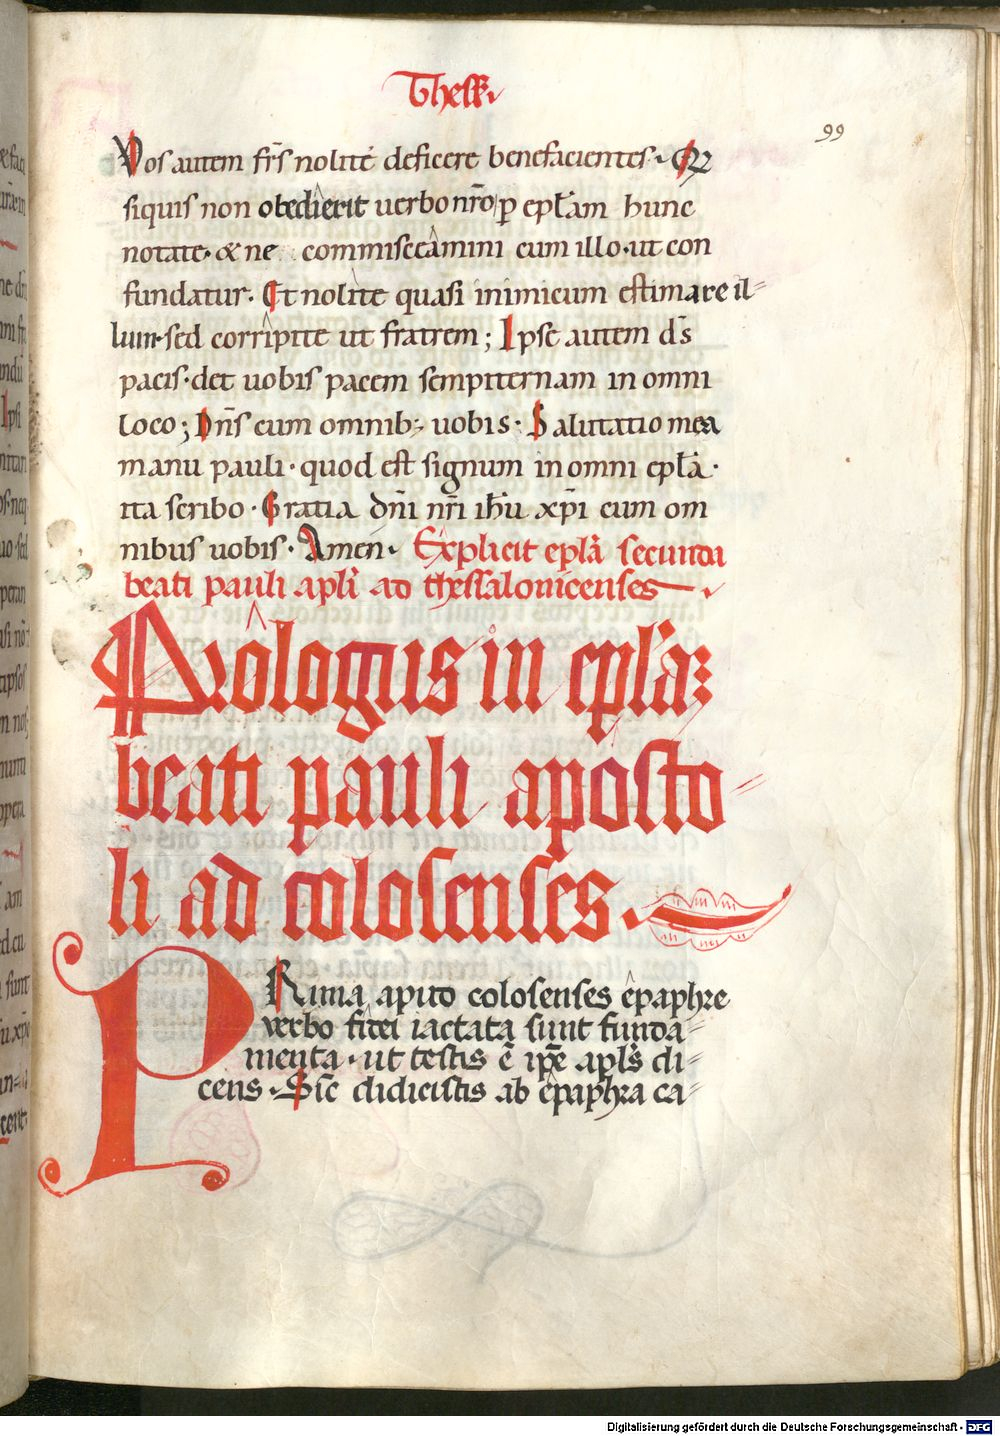 Thess.
99
Vos autem fr̄s nolite deficere benefacientes. Qꝫ
siquis non obedierit uerbo nr̄o p̱ epl̄am hunc
notate. & ne commisceamini cum illo. ut con
fundatur. Et nolite quasi inimicum estimare il⸗
lum. sed corripite ut fratrem; Ipse autem dn̄s
pacis. det uobis pacem sempiternam in omni
loco; Dn̄s cum omnib; uobis. Salutatio mea
manu pauli. quod est signum in omni epl̄a.
ita scribo. Gratia dn̄i nr̄i ih̄u xp̄i cum om
nibus uobis. Amen. Explicit epl̄a secunda
beati pauli apl̄i ad thessalonicenses
Prologus in epl̄aꝫ
beati pauli aposto⸗
li ad colosenses.
PRima apud colosenses epaphre
verbo fidei iactata sunt funda⸗
menta. ut testis ē ip̄e apl̄s di⸗
cens. Sic̄ didicistis ab epaphra ca⸗
Digitalisierung gefördert durch die Deutsche Forschungsgemeinschaft - DFG